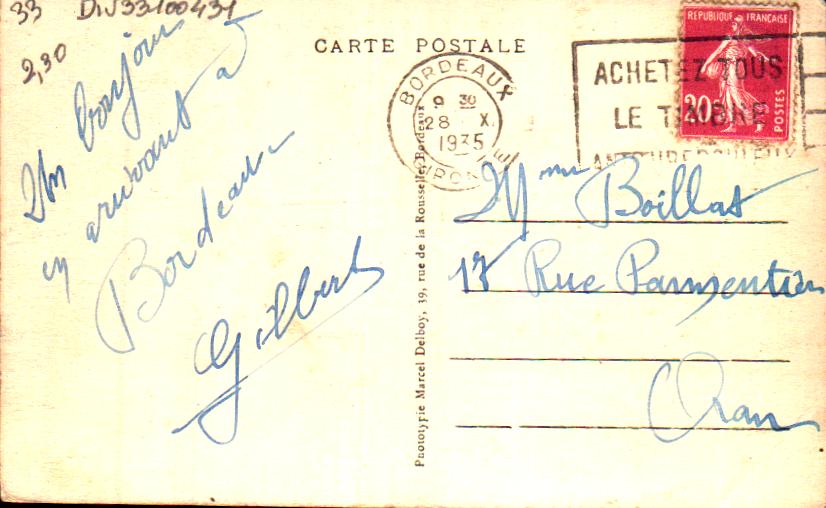 33 DIV33100431
2,30
CARTE POSTALE
Un bonjour
en arrivant à
Bordeaux
Gilbert
BORDEAUX
9 30
28 X
1935
GIRONDE
ACHETEZ TOUS
LE TIMBRE
ANTITUBERCULEUX
REPUBLIQUE FRANÇAISE
20c
POSTES
Mme Boillat
17 Rue Parmentier
Oran
Phototypie Marcel Delboy, 39, rue de la Rousselle, Bordeaux